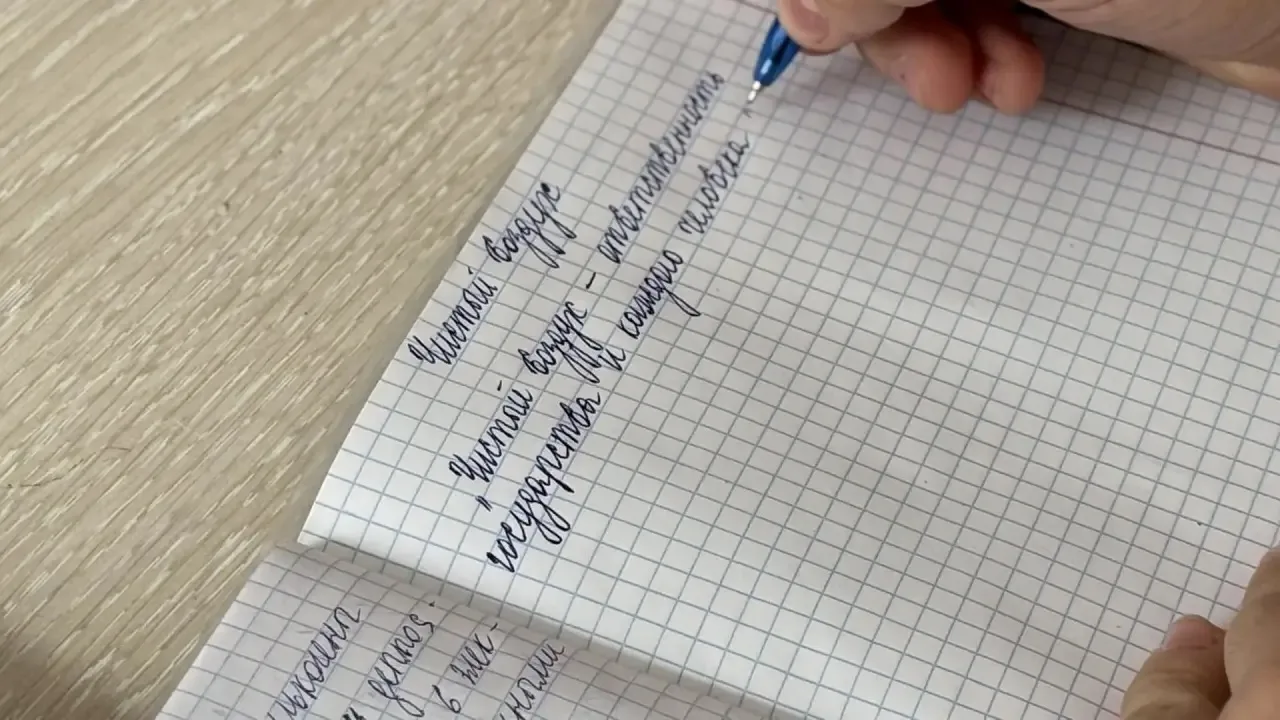 Чистый воздух
"Чистый воздух - ответственность
государства и каждго человека"
в тек-
ными